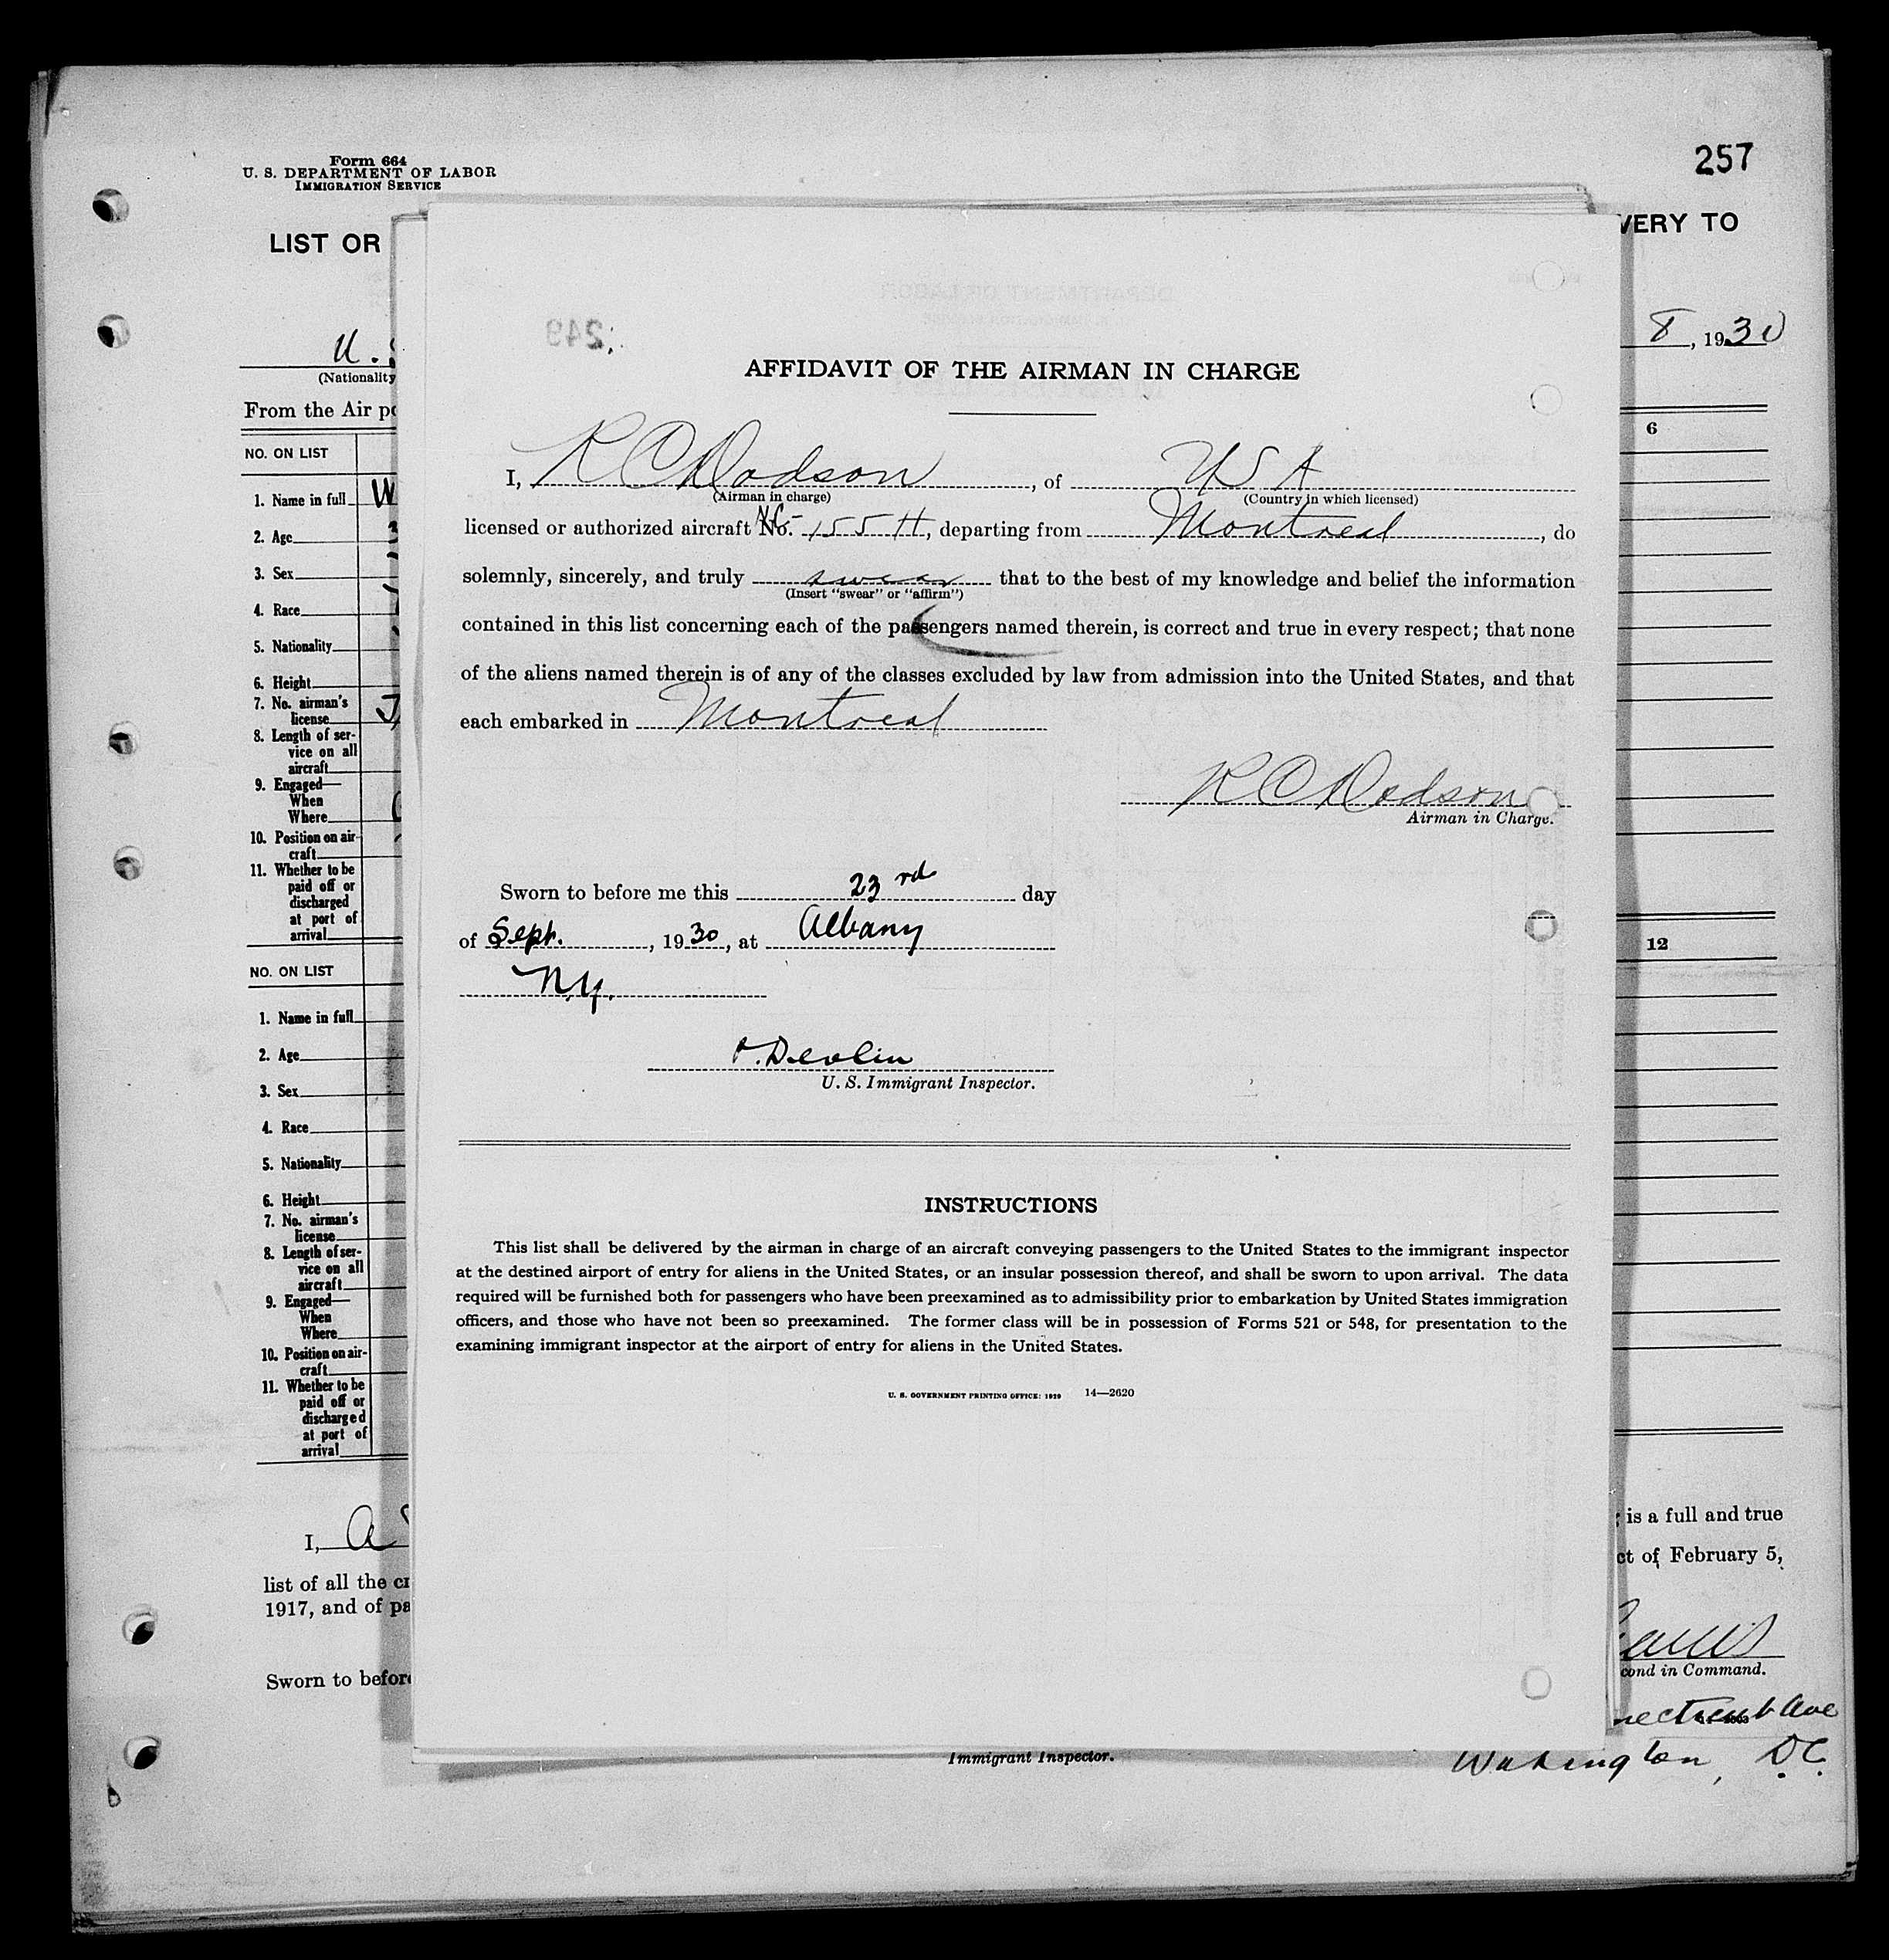 Form 664
U. S. DEPARTMENT OF LABOR
IMMIGRATION SERVICE
257
LIST OR
VERY TO
8, 1930
(Nationality
From the Air po
NO. ON LIST
6
1. Name in full
2. Age
3. Sex
4. Race
5. Nationality
6. Height
7. No. airman's
license
8. Length of ser-
vice on all
aircraft
9. Engaged—
When
Where
10. Position on air-
craft
11. Whether to be
paid off or
discharged
at port of
arrival
NO. ON LIST
12
1. Name in full
2. Age
3. Sex
4. Race
5. Nationality
6. Height
7. No. airman's
license
8. Length of ser-
vice on all
aircraft
9. Engaged—
When
Where
10. Position on air-
craft
11. Whether to be
paid off or
discharged
at port of
arrival
I, A
is a full and true
list of all the cr
ct of February 5,
1917, and of pa
Sworn to before
cond in Command.
necticut Ave
Immigrant Inspector.
Wahington, D.C.
249
AFFIDAVIT OF THE AIRMAN IN CHARGE
I, R C Dodson, of U S A
(Airman in charge) (Country in which licensed)
licensed or authorized aircraft No. NC- 155 H, departing from Montreal, do
solemnly, sincerely, and truly swear that to the best of my knowledge and belief the information
(Insert "swear" or "affirm")
contained in this list concerning each of the passengers named therein, is correct and true in every respect; that none
of the aliens named therein is of any of the classes excluded by law from admission into the United States, and that
each embarked in Montreal
R C Dodson
Airman in Charge.
Sworn to before me this 23rd day
of Sept., 1930, at Albany
N.Y.
P. Devlin
U. S. Immigrant Inspector.
INSTRUCTIONS
This list shall be delivered by the airman in charge of an aircraft conveying passengers to the United States to the immigrant inspector
at the destined airport of entry for aliens in the United States, or an insular possession thereof, and shall be sworn to upon arrival. The data
required will be furnished both for passengers who have been preexamined as to admissibility prior to embarkation by United States immigration
officers, and those who have not been so preexamined. The former class will be in possession of Forms 521 or 548, for presentation to the
examining immigrant inspector at the airport of entry for aliens in the United States.
U. S. GOVERNMENT PRINTING OFFICE: 1929 14—2620